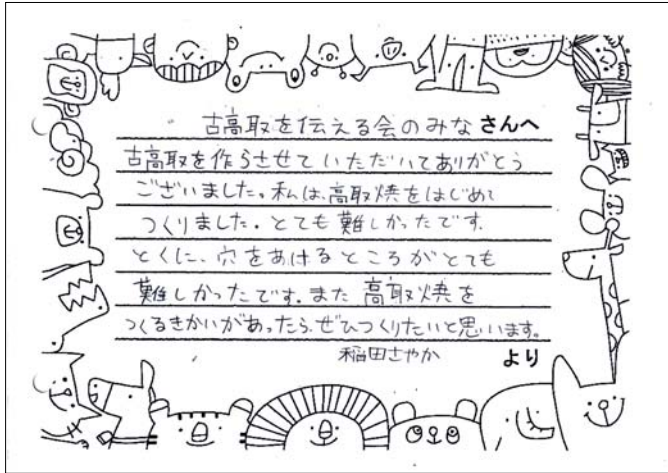 古高取を伝える会のみなさんへ
古高取を作らせていただいてありがとう
ございました。私は、高取焼をはじめて
つくりました。とても難しかったです。
とくに、穴をあけるところがとても
難しかったです。また高取焼を
つくるきかいがあったら、ぜひつくりたいと思います。
稲田さやか より